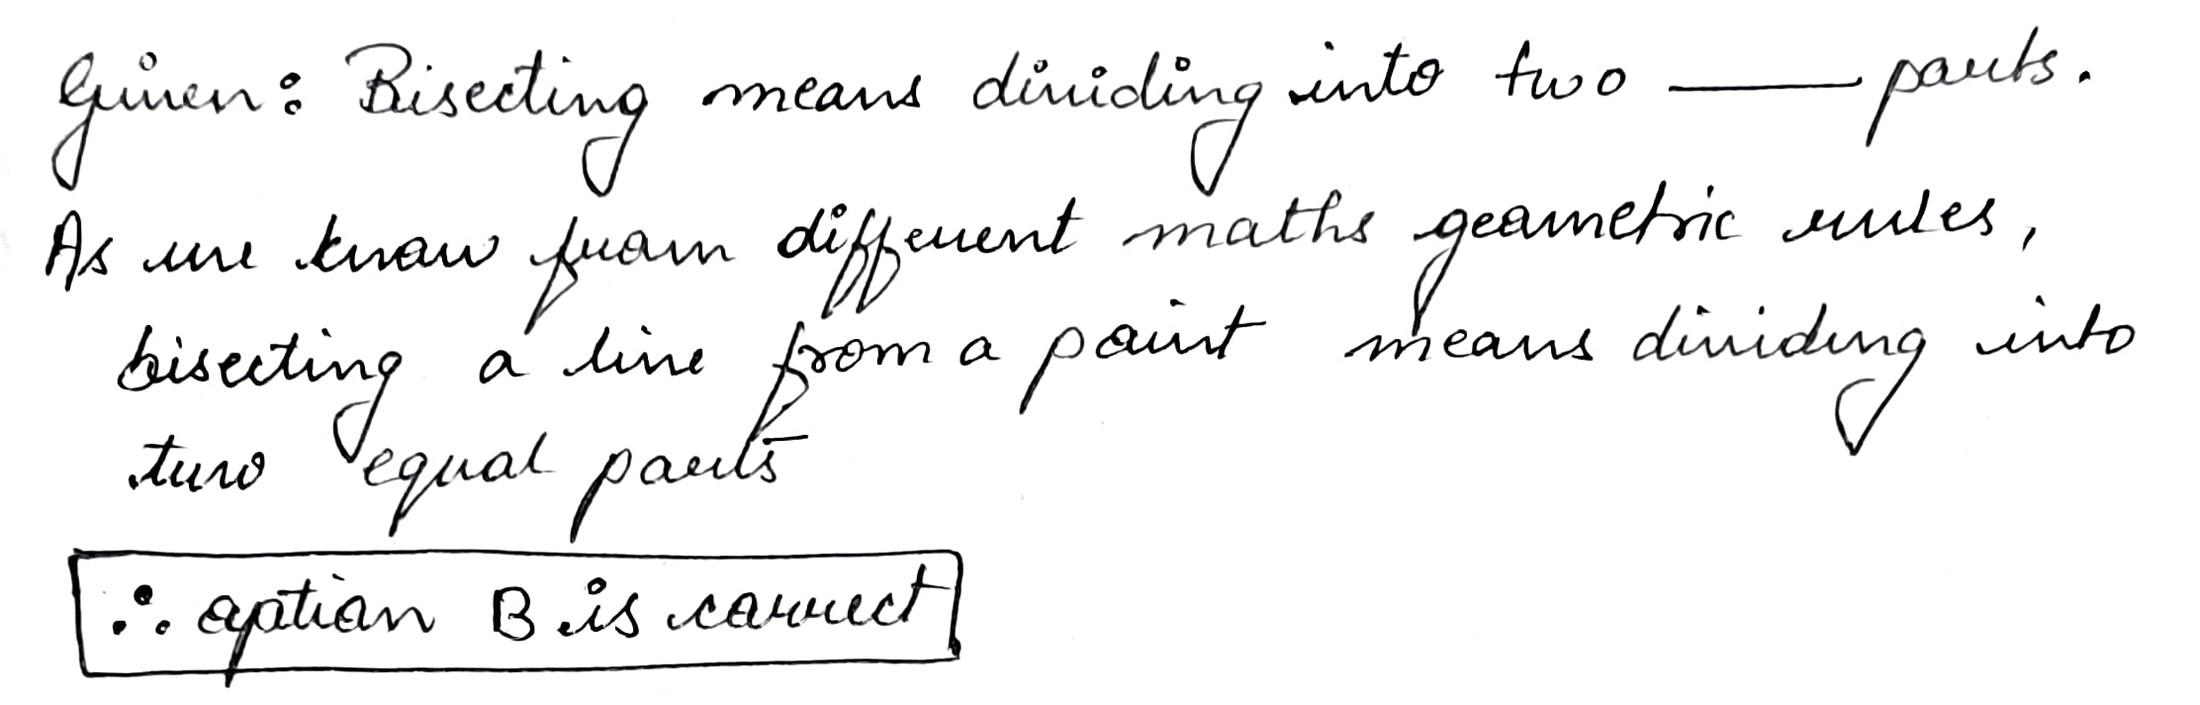 Given: Bisecting means dividing into two ____ parts.
As we know from different maths geometric rules,
bisecting a line from a point means dividing into
two equal parts
∴ option B is correct